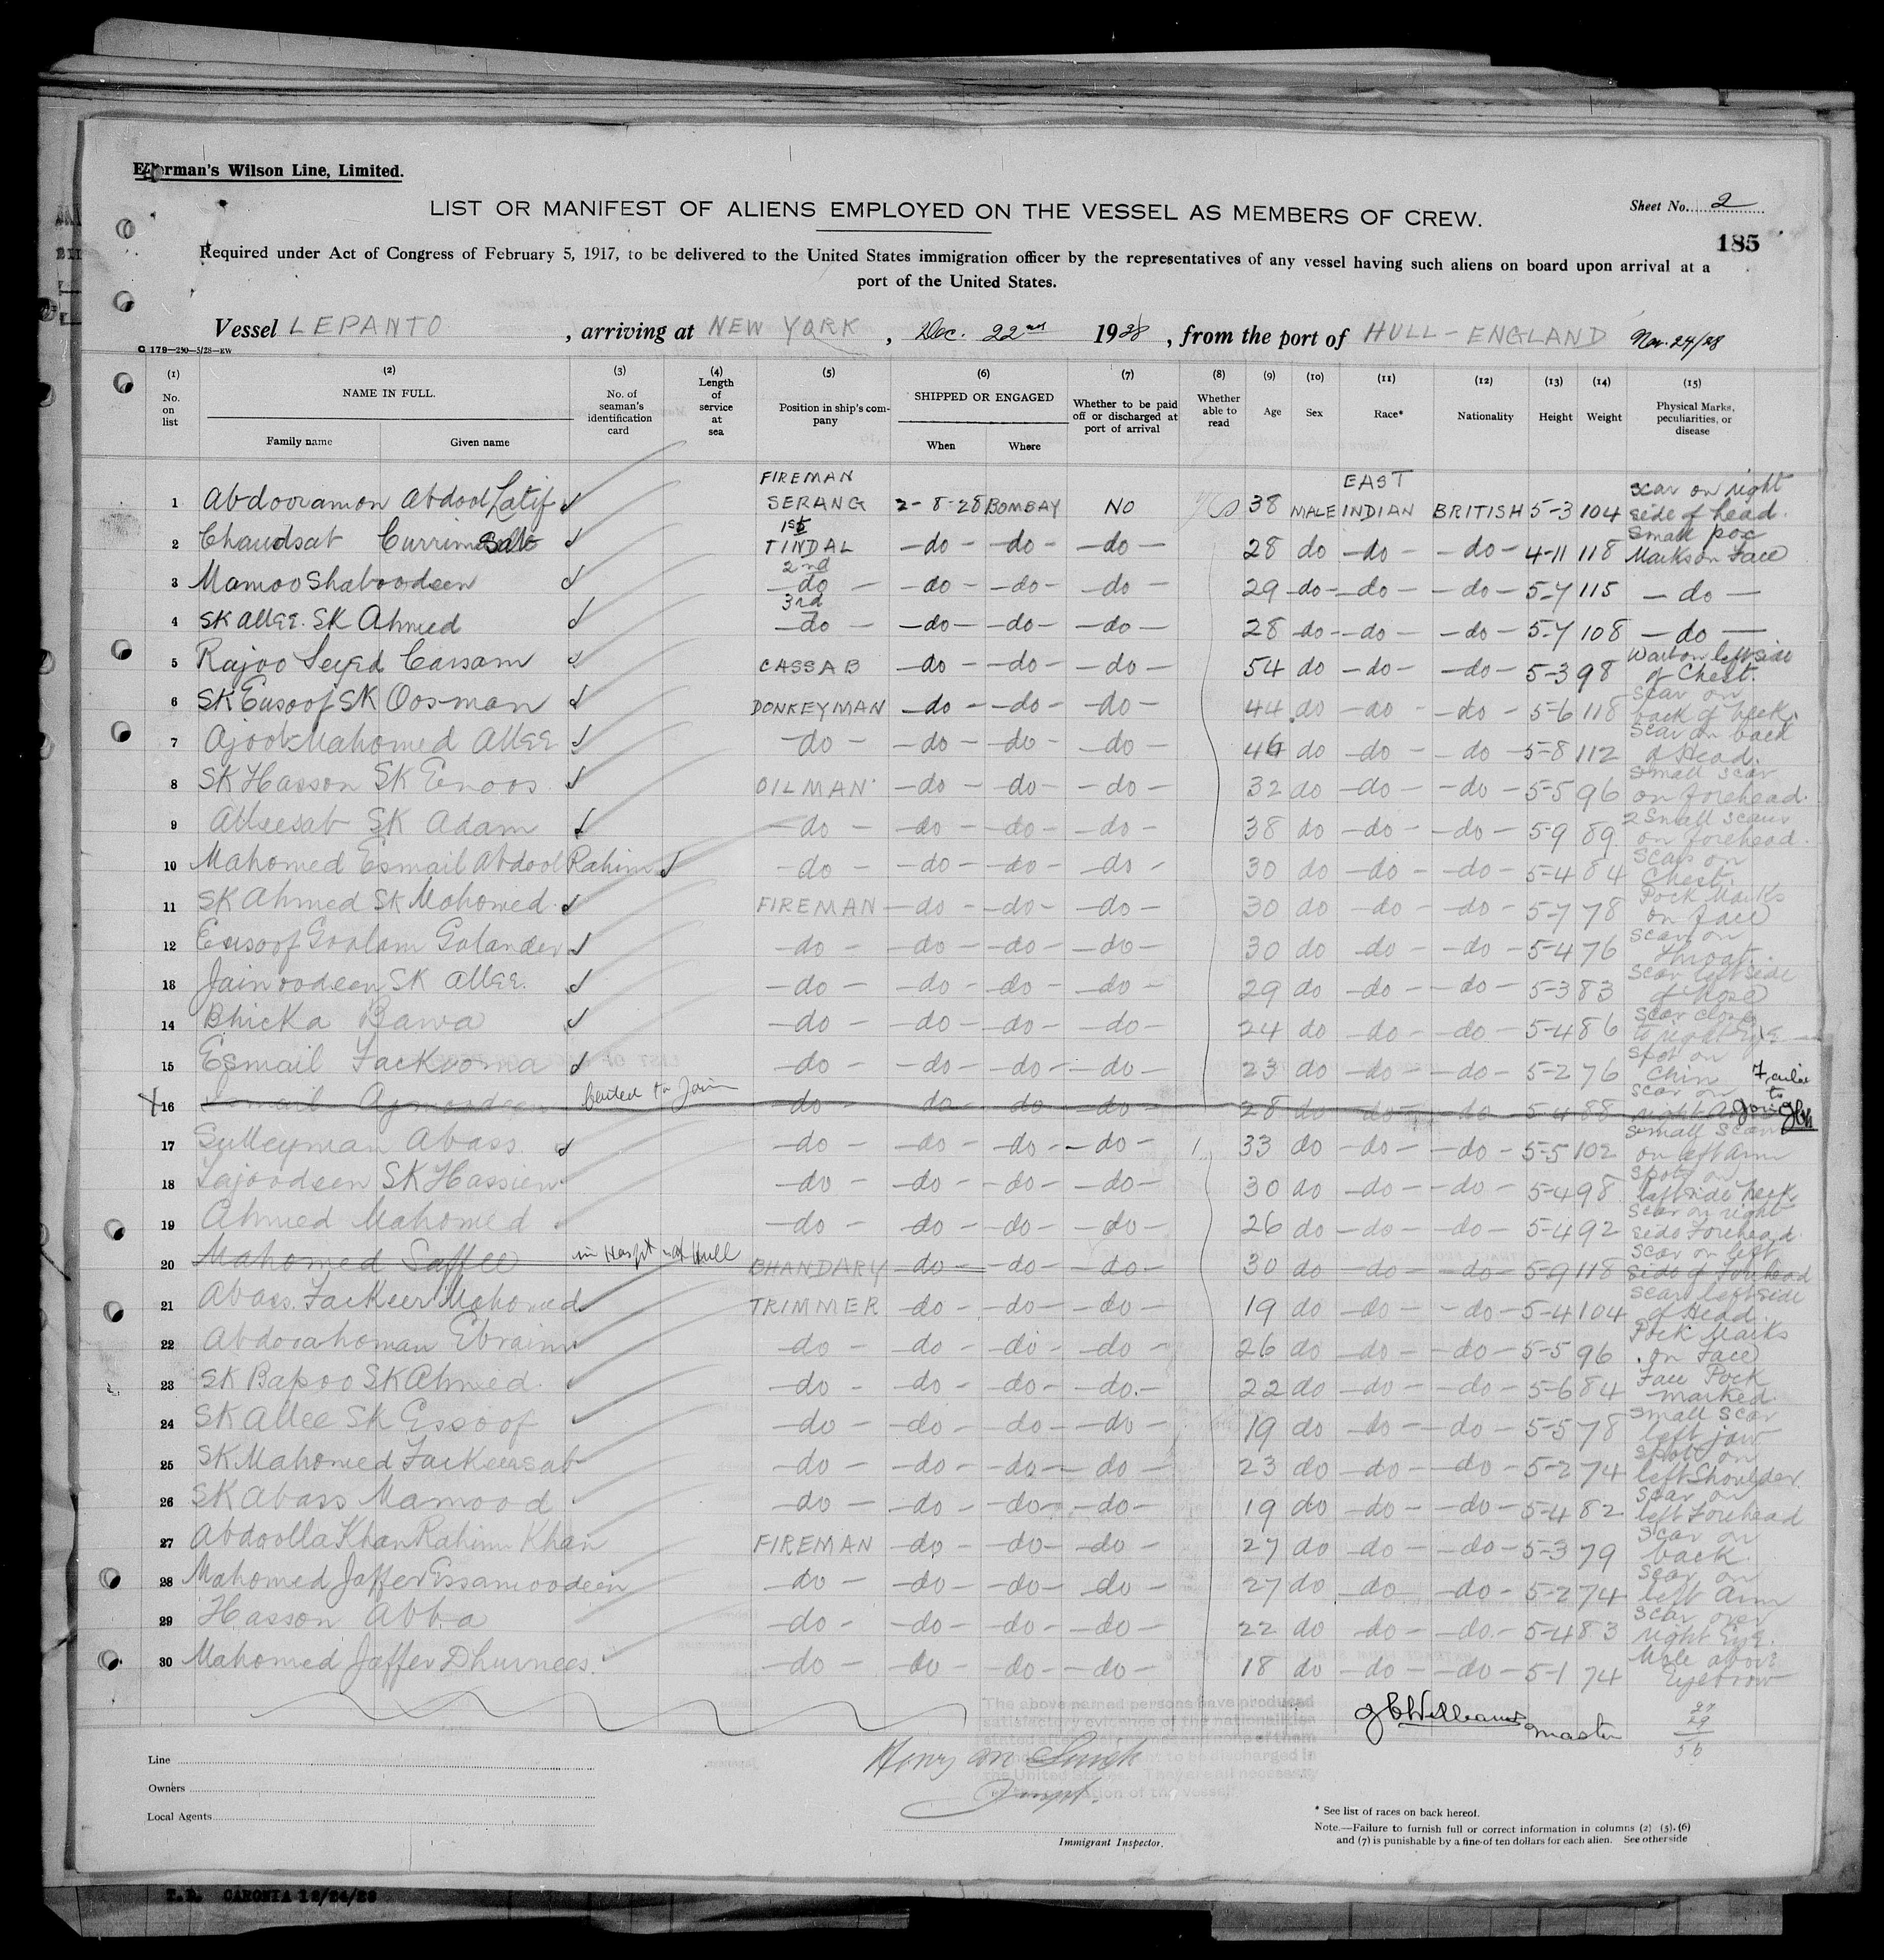 Ellerman's Wilson Line, Limited.
LIST OR MANIFEST OF ALIENS EMPLOYED ON THE VESSEL AS MEMBERS OF CREW.
Sheet No. 2
185
Required under Act of Congress of February 5, 1917, to be delivered to the United States immigration officer by the representatives of any vessel having such aliens on board upon arrival at a
port of the United States.
Vessel LEPANTO, arriving at NEW YORK, Dec. 22nd 1928, from the port of HULL - ENGLAND Nov. 24/28
C 179-250-5/28-EW
(1) No. on list (2) NAME IN FULL. Family name Given name (3) No. of seaman's identification card (4) Length of service at sea (5) Position in ship's company (6) SHIPPED OR ENGAGED When Where (7) Whether to be paid off or discharged at port of arrival (8) Whether able to read (9) Age (10) Sex (11) Race* (12) Nationality (13) Height (14) Weight (15) Physical Marks, peculiarities, or disease
1 Abdooramon Abdool Latif FIREMAN SERANG 2-8-28 BOMBAY NO Yes 38 MALE EAST INDIAN BRITISH 5-3 104 Scar on right side of head.
2 Chaudsab 1st TINDAL -do- -do- -do- 28 do -do- -do- 4-11 118 Small poc Marks on Face
3 Mamoo Shaboodeen 2nd -do- -do- -do- -do- 29 -do- -do- -do- 5-7 115 -do-
4 SK Allee. SK Ahmed 3rd -do- -do- -do- -do- 28 -do- -do- -do- 5-7 108 -do-
5 Rajoo Seyed Cassam CASSAB -do- -do- -do- 54 do -do- -do- 5-3 98 Wart on left side of Chest.
6 SK Eusoof SK Oosman DONKEYMAN -do- -do- -do- 44 do -do- -do- 5-6 118 Scar on back of neck.
7 Mahomed Allee -do- -do- -do- -do- 46 do -do- -do 5-8 112 Scar on back of Head.
8 SK Hasson SK Enoos OILMAN -do- -do- -do- 32 do -do- -do- 5-5 96 Small scar on forehead.
9 Alleesab SK Adam -do- -do- -do- -do- 38 do -do- -do- 5-9 89 2 Small scars on forehead.
10 Mahomed Esmail Abdool Rahim -do- -do- -do- do- 30 do -do- -do- 5-4 84 Scars on Chest.
11 SK Ahmed SK Mahomed FIREMAN -do- -do- -do- 30 do -do- -do- 5-7 78 Pock Marks on face
12 Eusoof Goolam Galander -do- -do- -do- -do- 30 do -do- -do- 5-4 76 Scar on throat.
13 Jainoodeen SK Allee. -do- -do- -do- -do- 29 do -do- -do- 5-3 83 Scar left side of nose
14 Bhicka Bawa -do- -do- -do- -do- 24 do -do- -do- 5-4 86 Scar close to right Eye
15 Esmail Fackrooma -do- -do- -do- -do- 23 do -do- -do- 5-2 76 Spot on Chin
16 Ismail Ajmoodeen failed to Join -do- do- do -do- 28 do -do- -do 5-4 88 Scar on right Arm Failed to join
17 Sulleyman Abass -do- -do- -do- -do- 33 do -do- -do- 5-5 102 Small Scar on left arm
18 Lajoodeen SK Hassien -do- -do- -do- -do- 30 do -do- -do- 5-4 98 Spot on left side neck
19 Ahmed Mahomed -do- do- -do- -do- 26 do -do- -do- 5-4 92 Scar on right side Forehead.
20 Mahomed Saffee in Hospt at Hull BHANDARY -do- -do- -do- 30 do -do- -do- 5-9 118 Scar on left side of Forehead
21 Abass Fackeer Mahomed TRIMMER -do- -do- -do- 19 do -do- -do- 5-4 104 Scar left side of Head.
22 Abdorahoman Ebraim -do- -do- -do- -do- 26 do -do- -do- 5-5 96 Pock Marks on Face
23 SK Bapoo SK Ahmed -do- -do- -do- -do- 22 do -do- -do- 5-6 84 Face Pock marked
24 SK Allee SK Essoof -do- -do- -do- -do- 19 do -do- -do- 5-5 78 Small Scar left jaw
25 SK Mahomed Fackeersab -do- -do- -do- -do- 23 do -do- -do- 5-2 74 left Shoulder.
26 SK Abass Mamood -do- -do- -do- -do- 19 do -do- -do- 5-4 82 Scar on left Forehead
27 Abdoolla Khan Rahim Khan FIREMAN -do- -do- -do- 27 do -do- -do- 5-3 79 Scar on back.
28 Mahomed Jaffer Essamoodeen -do- -do- -do- do- 27 do -do -do- 5-2 74 Scar on left Arm
29 Hasson Abba -do- -do- -do- -do- 22 do -do- -do- 5-4 83 Scar over right Eye.
30 Mahomed Jaffer Dhurnees. -do- do- -do- -do- 18 do -do- -do- 5-1 74 Mole above Eyebrow
The above named persons have produced
satisfactory evidence of the nationalities
J E Williams Master
27
29
56
Line
Owners
Local Agents
Immigrant Inspector.
* See list of races on back hereof.
Note.—Failure to furnish full or correct information in columns (2) (5), (6)
and (7) is punishable by a fine of ten dollars for each alien. See otherside
T.D. CARONIA 12/24/28